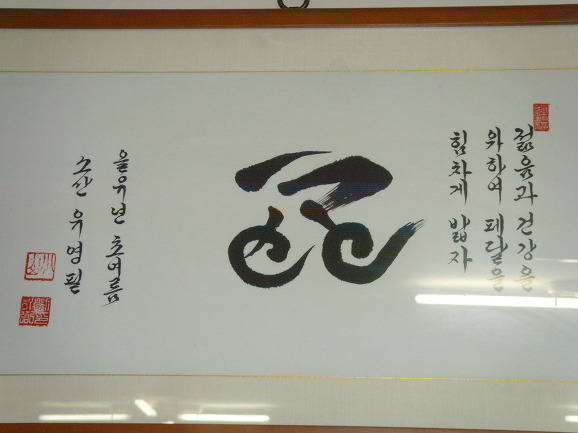 젊음과 건강을
위하여 페달을
힘차게 밟자
을유년 초여름
소산 우영필